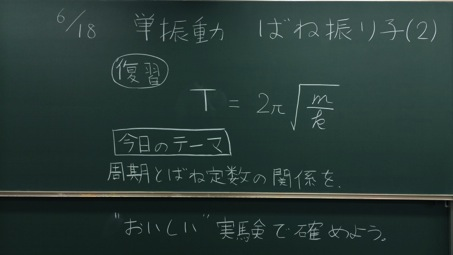 6/18 単振動 ばね振り子(2)
復習
T = 2π√(m/k)
今日のテーマ
周期とばね定数の関係を、
"おいしい"実験で確めよう。